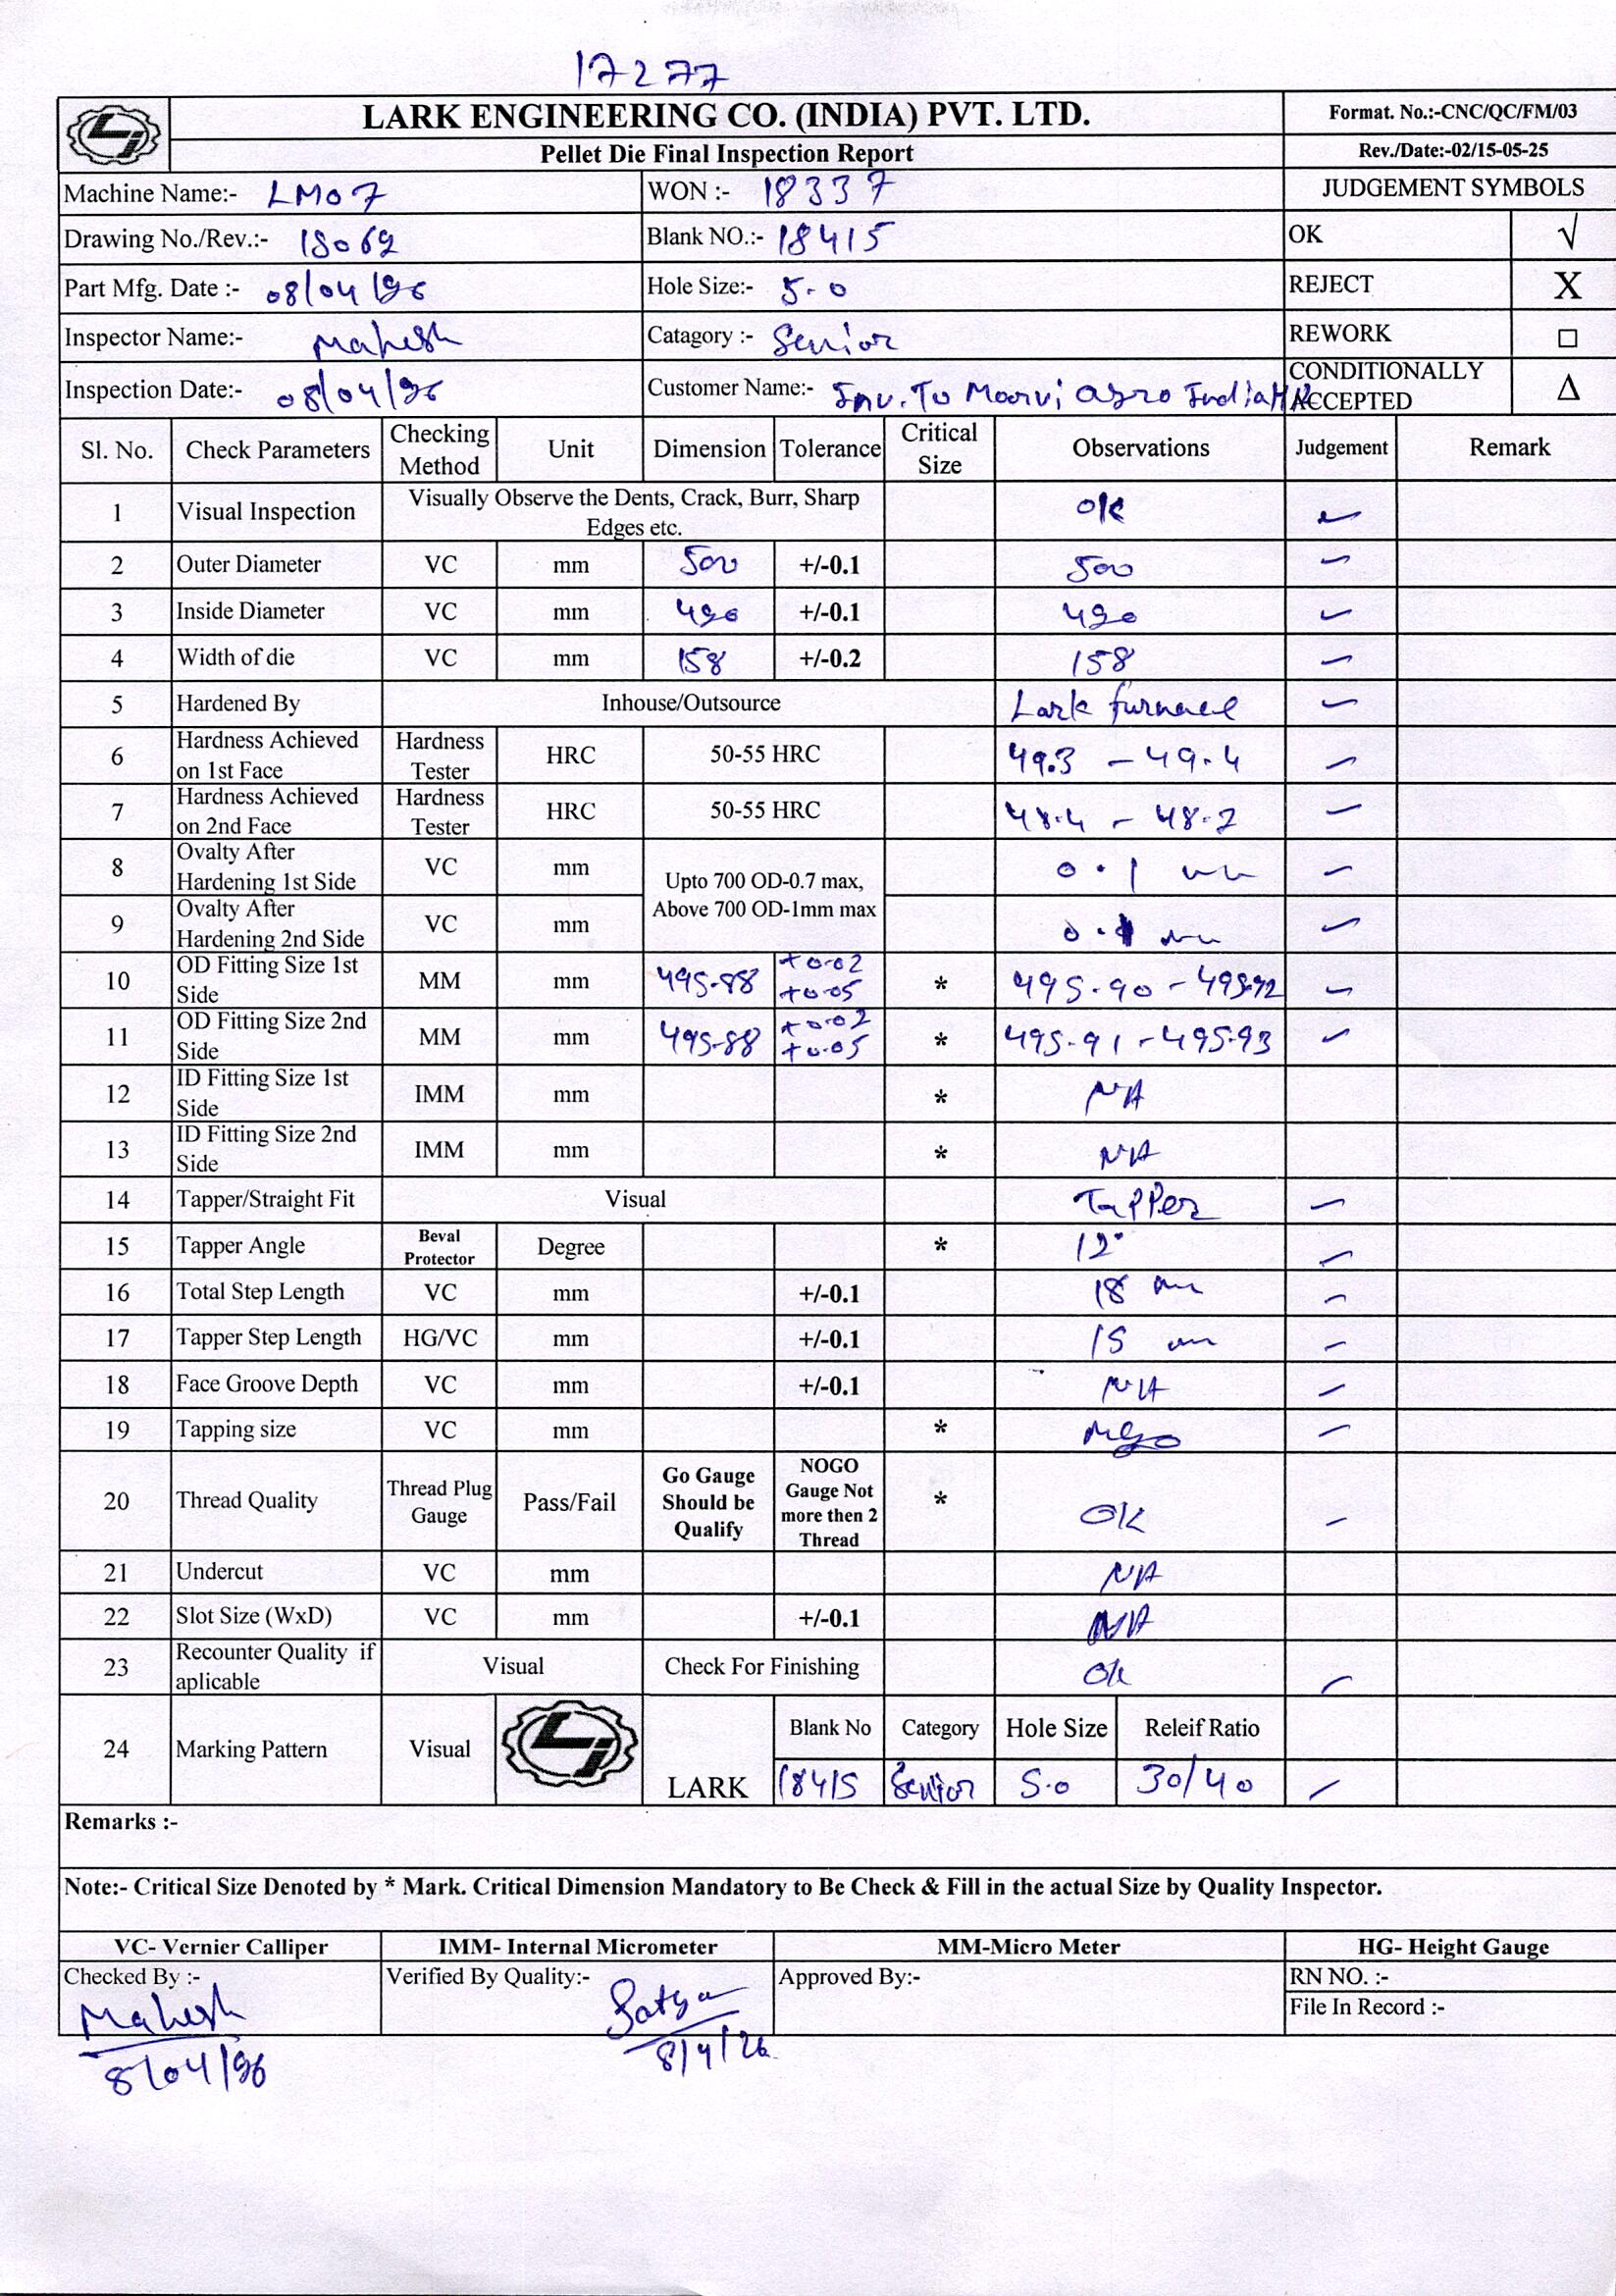 17277
LARK ENGINEERING CO. (INDIA) PVT. LTD.
Format. No.:-CNC/QC/FM/03
Pellet Die Final Inspection Report
Rev./Date:-02/15-05-25
Machine Name:- LM07 WON :- 18337 JUDGEMENT SYMBOLS
Drawing No./Rev.:- 18069 Blank NO.:- 18415 OK √
Part Mfg. Date :- 08/04/26 Hole Size:- 5.0 REJECT X
Inspector Name:- Mahesh Catagory :- Senior REWORK □
Inspection Date:- 08/04/26 Customer Name:- Inv. To Moorvi Agro India HR CONDITIONALLY ACCEPTED Δ
Sl. No. Check Parameters Checking Method Unit Dimension Tolerance Critical Size Observations Judgement Remark
1 Visual Inspection Visually Observe the Dents, Crack, Burr, Sharp Edges etc. ok ✓
2 Outer Diameter VC mm 500 +/-0.1 500 ✓
3 Inside Diameter VC mm 420 +/-0.1 420 ✓
4 Width of die VC mm 158 +/-0.2 158 ✓
5 Hardened By Inhouse/Outsource Lark furnace ✓
6 Hardness Achieved on 1st Face Hardness Tester HRC 50-55 HRC 49.3 - 49.4 ✓
7 Hardness Achieved on 2nd Face Hardness Tester HRC 50-55 HRC 48.4 - 48.2 ✓
8 Ovalty After Hardening 1st Side VC mm Upto 700 OD-0.7 max, Above 700 OD-1mm max 0.1 mm ✓
9 Ovalty After Hardening 2nd Side VC mm mm ✓
10 OD Fitting Size 1st Side MM mm 495.88 +0.02 +0.05 * 495.90 - 495.92 ✓
11 OD Fitting Size 2nd Side MM mm 495.88 +0.02 +0.05 * 495.91 - 495.93 ✓
12 ID Fitting Size 1st Side IMM mm * NA
13 ID Fitting Size 2nd Side IMM mm * NA
14 Tapper/Straight Fit Visual Tapper ✓
15 Tapper Angle Beval Protector Degree * 12° ✓
16 Total Step Length VC mm +/-0.1 18 mm ✓
17 Tapper Step Length HG/VC mm +/-0.1 15 mm ✓
18 Face Groove Depth VC mm +/-0.1 NA ✓
19 Tapping size VC mm * ✓
20 Thread Quality Thread Plug Gauge Pass/Fail Go Gauge Should be Qualify NOGO Gauge Not more then 2 Thread * OK ✓
21 Undercut VC mm NA
22 Slot Size (WxD) VC mm +/-0.1 NA
23 Recounter Quality if aplicable Visual Check For Finishing Ok ✓
24 Marking Pattern Visual LARK Blank No Category Hole Size Releif Ratio
18415 Senior 5.0 30/40 ✓
Remarks :-
Note:- Critical Size Denoted by * Mark. Critical Dimension Mandatory to Be Check & Fill in the actual Size by Quality Inspector.
VC- Vernier Calliper IMM- Internal Micrometer MM-Micro Meter HG- Height Gauge
Checked By :- Verified By Quality:- Approved By:- RN NO. :-
File In Record :-
Mahesh Satya
8/04/26 8/4/26